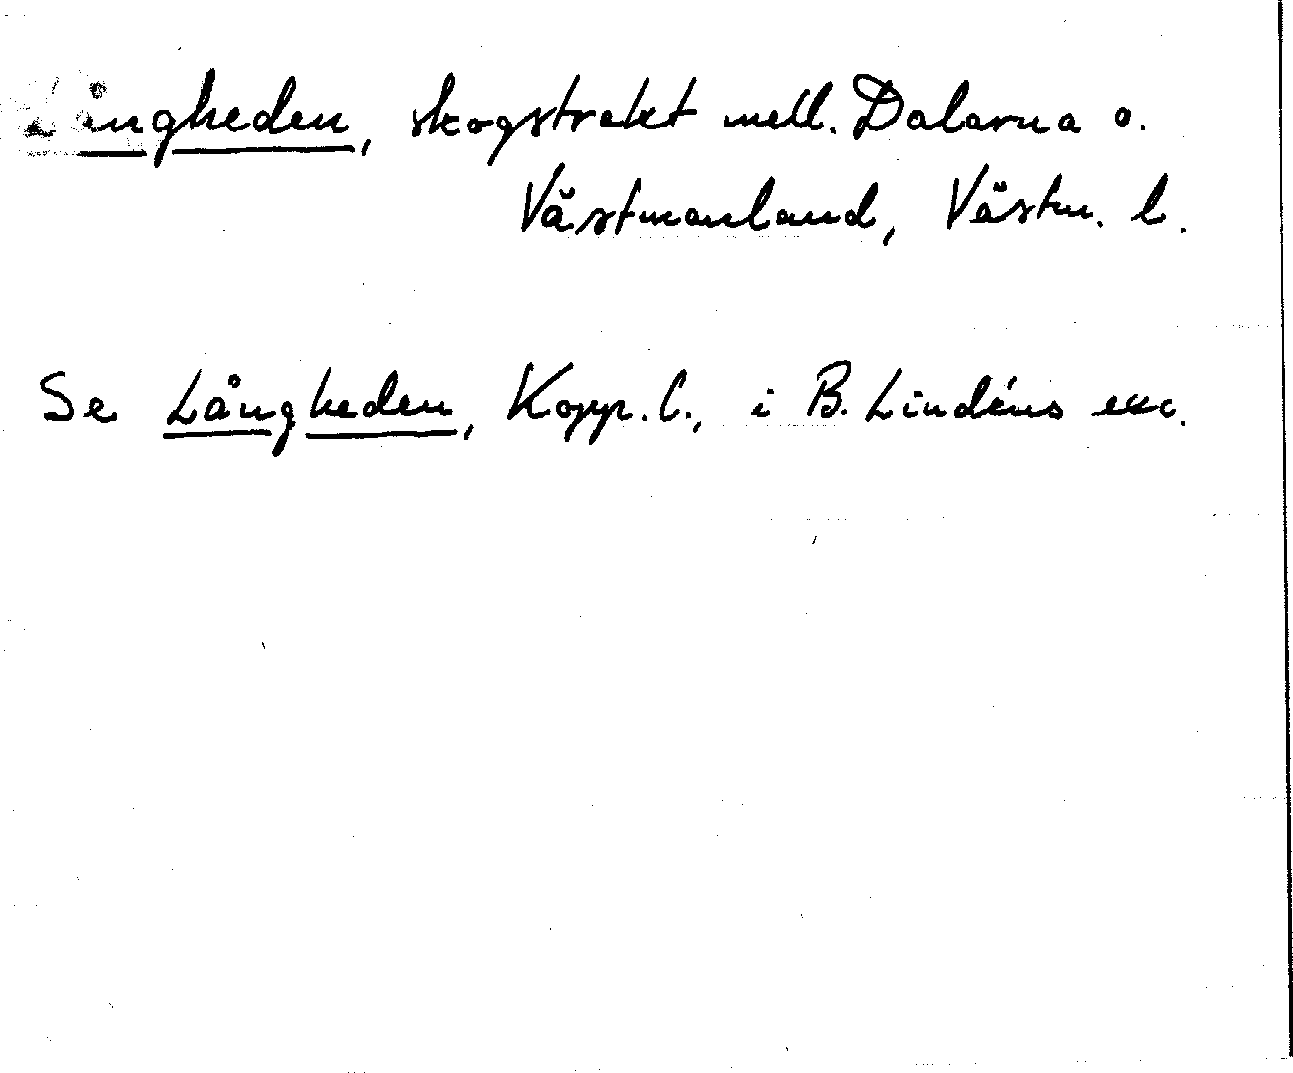 Långheden, skogstrakt mell. Dalarna o.
Västmanland, Västm. l.
Se Långheden, Kopp. l., i B. Lindéns exc.